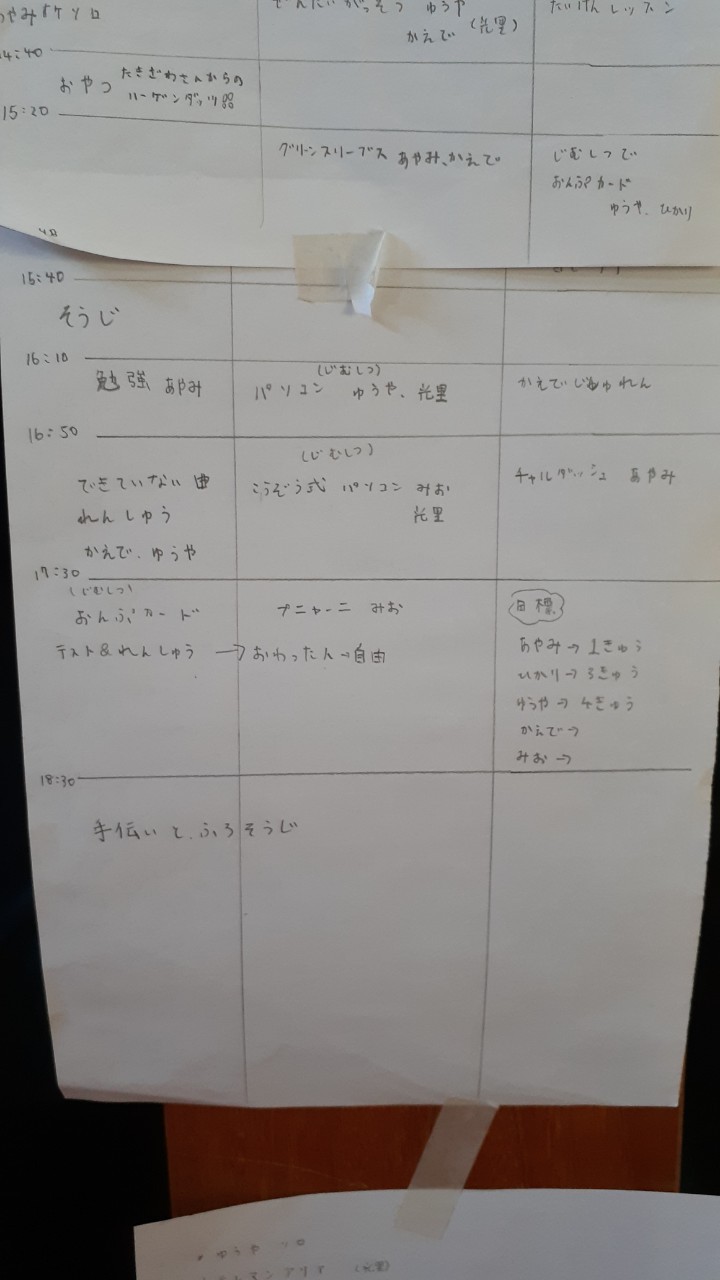 ゆうや
かえで (光里)
たいけんレッスン
14:40
おやつ たきざわさんからの
ハーゲンダッツ
15:20
グリーンスリーブス あやみ、かえで
じむしつで
おんぷカード
ゆうや、ひかり
15:40
そうじ
16:10
勉強 あやみ
(じむしつ)
パソコン ゆうや、光里
かえでじゅれん
16:50
できていない曲
れんしゅう
かえで、ゆうや
(じむしつ)
こうぞう式 パソコン みお
光里
チャルダッシュ あやみ
17:30
(じむしつ)
おんぷカード
テスト&れんしゅう → おわった人→自由
プニャーニ みお
目標
あやみ→1きゅう
ひかり→3きゅう
ゆうや→4きゅう
かえで→
みお→
18:30
手伝いと、ふろそうじ
ゆうや ソロ
(光里)